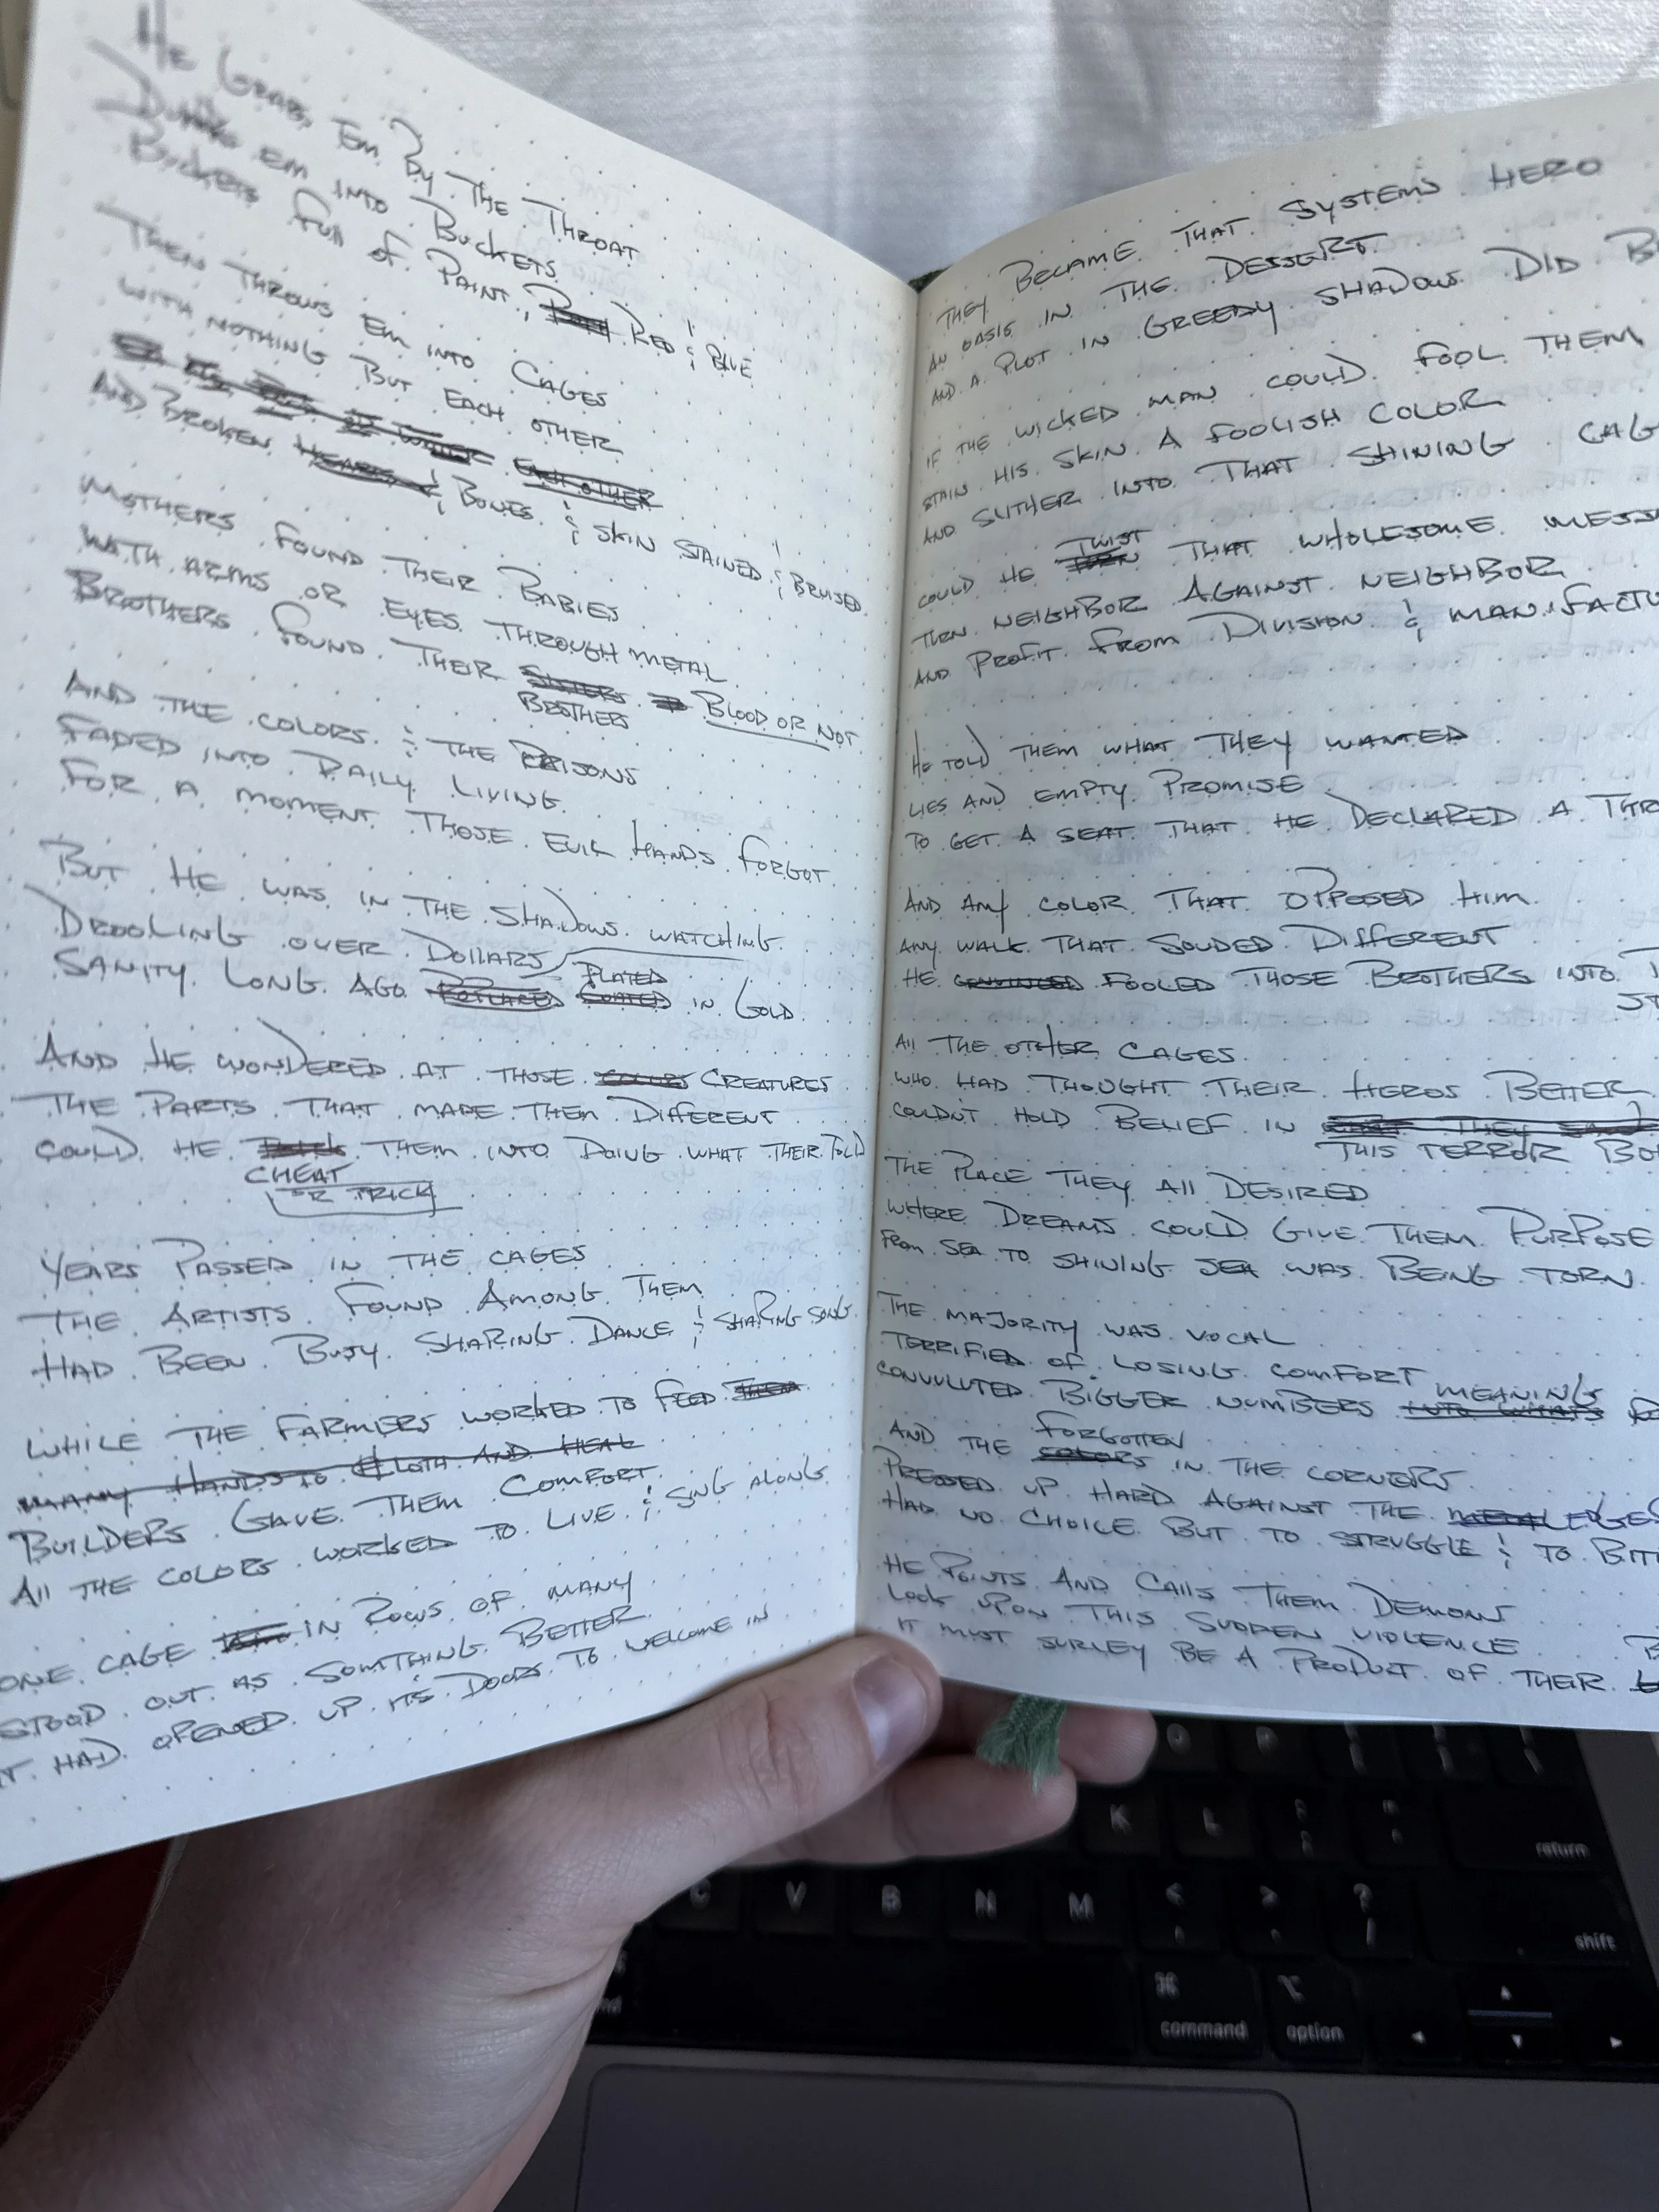 He Grabs Em By The Throat
Dunks em into Buckets
Buckets full of Paint, Red & Blue
Then throws em into Cages
with nothing But each other
And Broken & Bones & Skin Stained & Bruised
Mothers found their Babies
With arms or eyes through metal
Brothers found their Brothers Blood or not
And the colors & the Prisons
Faded into Daily Living
For a moment those evil hands forgot
But he was in the shadows watching
Drooling over Dollars
Sanity long ago plated in Gold
And he wondered at those creatures
The parts that made them different
Could he them into doing what their told
cheat
or trick
Years passed in the cages
The artists found among them
Had been busy sharing dance & sharing song
While the farmers worked to feed
many hands to cloth and heal
Builders gave them comfort
All the colors worked to live & sing along
One cage in rows of many
Stood out as somthing better
It had opened up its doors to welcome in
They became that systems hero
An oasis in the dessert
And a plot in greedy shadows did
If the wicked man could fool them
Stain his skin a foolish color
And slither into that shining
Could he twist that wholesome
Turn neighbor against neighbor
And profit from division &
He told them what they wanted
Lies and empty promise
To get a seat that he declared a
And any color that opposed him
Any walk that souded different
He fooled those brothers into
All the other cages
Who had thought their heros better
Couldn't hold belief in
this terror
The place they all desired
Where dreams could give them purpose
From sea to shining sea was being torn
The majority was vocal
Terrified of losing comfort
Convuluted bigger numbers meaning
And the forgotten in the corners
Pressed up hard against the edges
Had no choice but to struggle & to
He points and calls them demons
Look upon this sudden violence
It must surley be a product of their
C V B N M < , > . ? /
K L
O P
return
shift
⌘ command
⌥ option